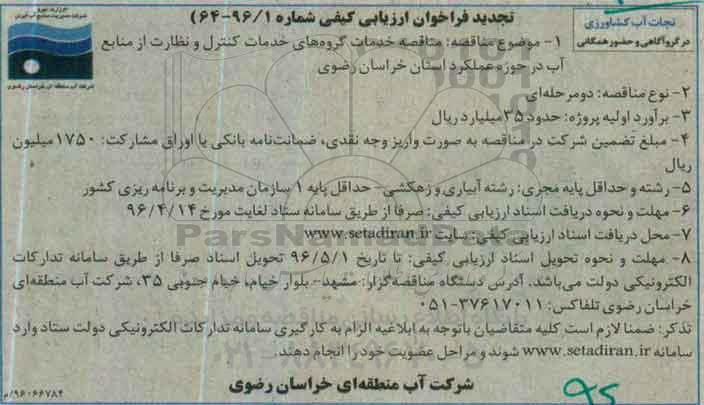 تجدید فراخوان ارزیابی کیفی شماره ۹۶/۱-۶۴)
نجات آب کشاورزی
در گرو آگاهی و حضور همگانی
شرکت آب منطقه ای خراسان رضوی
۱- موضوع مناقصه: مناقصه خدمات گروه‌های خدمات کنترل و نظارت از منابع
آب در حوزه عملکرد استان خراسان رضوی
۲- نوع مناقصه: دومرحله‌ای
۳- برآورد اولیه پروژه: حدود ۳۵ میلیارد ریال
۴- مبلغ تضمین شرکت در مناقصه به صورت واریز وجه نقدی، ضمانت‌نامه بانکی یا اوراق مشارکت: ۱۷۵۰ میلیون
ریال
۵- رشته و حداقل پایه مجری: رشته آبیاری و زهکشی- حداقل پایه ۱ سازمان مدیریت و برنامه ریزی کشور
۶- مهلت و نحوه دریافت اسناد ارزیابی کیفی: صرفا از طریق سامانه ستاد لغایت مورخ ۹۶/۴/۱۴
۷- محل دریافت اسناد ارزیابی کیفی: سایت www.setadiran.ir
۸- مهلت و نحوه تحویل اسناد ارزیابی کیفی: تا تاریخ ۹۶/۵/۱ تحویل اسناد صرفا از طریق سامانه تدارکات
الکترونیکی دولت می‌باشد. آدرس دستگاه مناقصه‌گزار: مشهد- بلوار خیام، خیام جنوبی ۳۵، شرکت آب منطقه‌ای
خراسان رضوی تلفاکس: ۳۷۶۱۷۰۱۱-۰۵۱
تذکر: ضمنا لازم است کلیه متقاضیان باتوجه به ابلاغیه الزام به کارگیری سامانه تدارکات الکترونیکی دولت ستاد وارد
سامانه www.setadiran.ir شوند و مراحل عضویت خود را انجام دهند.
شرکت آب منطقه‌ای خراسان رضوی
۹۶۰۶۶۷۸۴/م
ParsNamadData